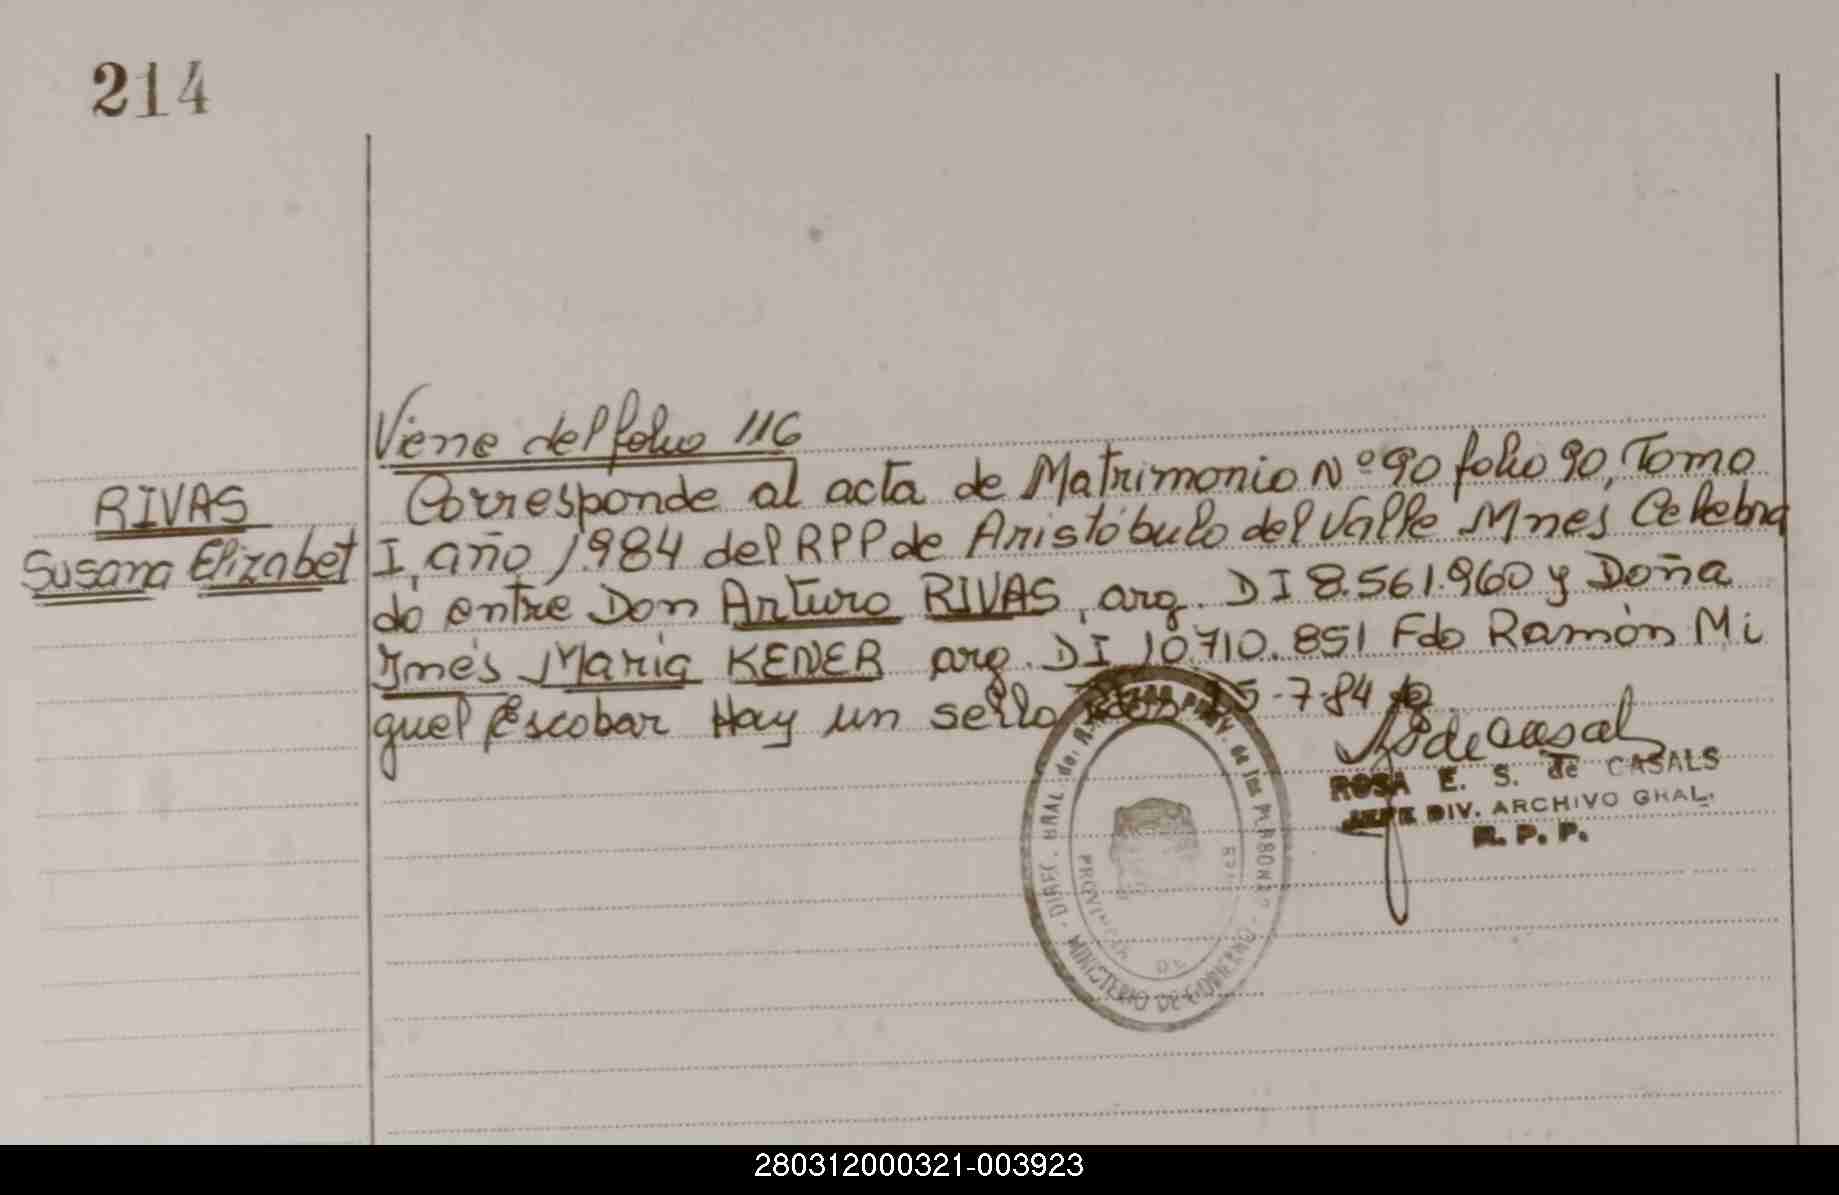 214
RIVAS
Susana Elizabet
Viene del folio 116
Corresponde al acta de Matrimonio Nº 90 folio 90, Tomo
I, año 1.984 del RPP de Aristóbulo del Valle Mnes Celebra
do entre Don Arturo RIVAS, arg. DI 8.561.960 y Doña
Inés María KENER arg. DI 10.710.851 Fdo Ramón Mi
guel Escobar Hay un sello 25-7-84
S de Casals
ROSA E. S. de CASALS
JEFE DIV. ARCHIVO GRAL.
R. P. P.
DIREC. GRAL. del R. PROV. de las PERSONAS
MINISTERIO DE GOBIERNO
PROVINCIA DE
280312000321-003923